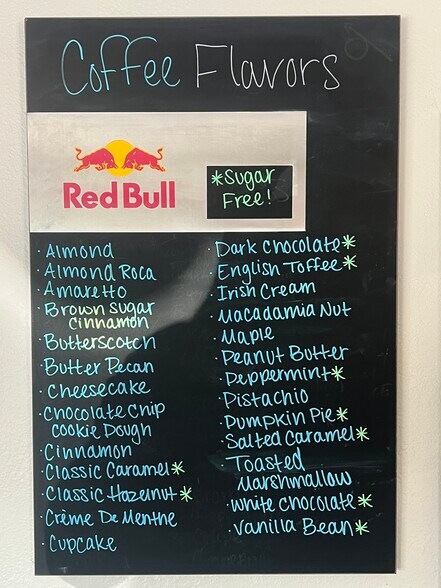 Coffee Flavors
Red Bull
*Sugar
Free!
· Almond
· Almond Roca
· Amaretto
· Brown Sugar
Cinnamon
· Butterscotch
· Butter Pecan
· Cheesecake
· Chocolate Chip
Cookie Dough
· Cinnamon
· Classic Caramel*
· Classic Hazelnut*
· Crème De Menthe
· Cupcake
· Dark Chocolate*
· English Toffee*
· Irish Cream
· Macadamia Nut
· Maple
· Peanut Butter
· Peppermint*
· Pistachio
· Pumpkin Pie*
· Salted Caramel*
· Toasted
Marshmallow
· White Chocolate*
· Vanilla Bean*